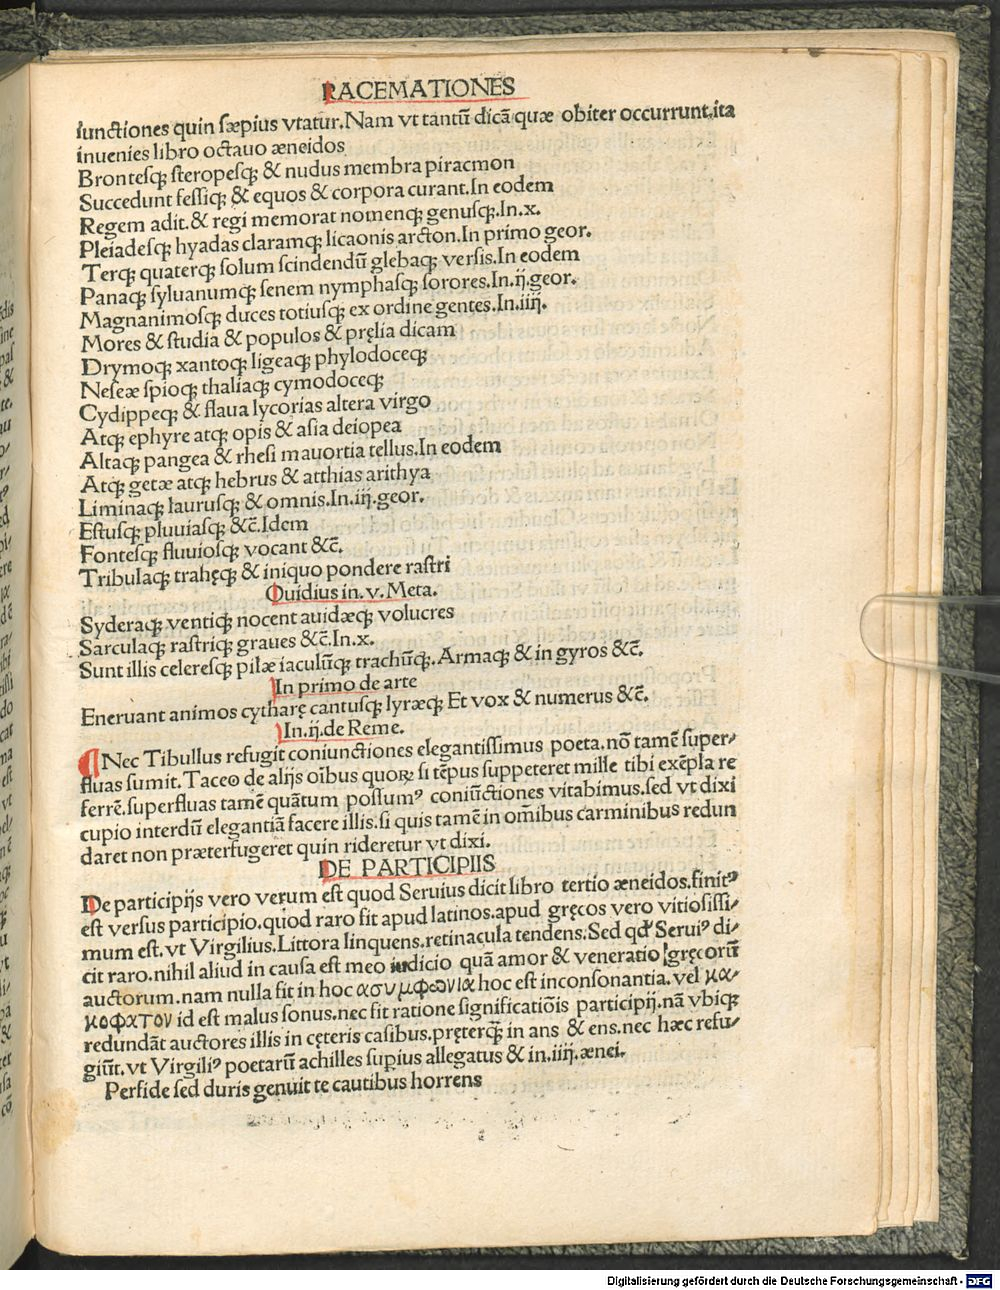 RACEMATIONES
iunctiones quin sæpius vtatur.Nam vt tantū dicā quæ obiter occurrunt,ita
inuenies libro octauo æneidos
Brontesqꝫ steropesqꝫ & nudus membra piracmon
Succedunt fessiqꝫ & equos & corpora curant.In eodem
Regem adit.& regi memorat nomenqꝫ genusqꝫ.In.x.
Pleiadesqꝫ hyadas claramqꝫ licaonis arcton.In primo geor.
Terqꝫ quaterqꝫ solum scindendū glebaqꝫ versis.In eodem
Panaqꝫ syluanumqꝫ senem nymphasqꝫ sorores.In.ij.geor.
Magnanimosqꝫ duces totiusqꝫ ex ordine gentes.In.iiij.
Mores & studia & populos & pręlia dicam
Drymoqꝫ xantoqꝫ ligeaqꝫ phylodoceqꝫ
Neseæ spioqꝫ thaliaqꝫ cymodoceqꝫ
Cydippeqꝫ & flaua lycorias altera virgo
Atqꝫ ephyre atqꝫ opis & asia deiopea
Altaqꝫ pangea & rhesi mauortia tellus.In eodem
Atqꝫ getæ atqꝫ hebrus & atthias arithya
Liminaqꝫ laurusqꝫ & omnis.In.iij.geor.
Estusqꝫ pluuiasqꝫ &c̄.Idem
Fontesqꝫ fluuiosqꝫ vocant &c̄.
Tribulaqꝫ trahęqꝫ & iniquo pondere rastri
Ouidius in.v.Meta.
Syderaqꝫ ventiqꝫ nocent auidæqꝫ volucres
Sarculaqꝫ rastriqꝫ graues &c̄.In.x.
Sunt illis celeresqꝫ pilæ iaculūqꝫ trachūqꝫ.Armaqꝫ & in gyros &c̄.
In primo de arte
Eneruant animos cytharę cantusqꝫ lyræqꝫ Et vox & numerus &c̄.
In.ij.de Reme.
¶Nec Tibullus refugit coniunctiones elegantissimus poeta.nō tamē super-
fluas sumit.Taceo de alijs oībus quoꝝ si tēpus suppeteret mille tibi exēpla re
ferrē.superfluas tamē quātum possumꝰ coniūctiones vitabimus.sed vt dixi
cupio interdū elegantiā facere illis.si quis tamē in om̄ibus carminibus redun
daret non præterfugeret quin rideretur vt dixi.
DE PARTICIPIIS
De participijs vero verum est quod Seruius dicit libro tertio æneidos.finitꝰ
est versus participio.quod raro fit apud latinos.apud gręcos vero vitiosissi-
mum est.vt Virgilius.Littora linquens.retinacula tendens.Sed qđ Seruiꝰ di-
cit raro.nihil aliud in causa est meo iudicio quā amor & veneratio gręcorū
auctorum.nam nulla fit in hoc ασυμφωνια hoc est inconsonantia.vel κα-
κοφατον id est malus sonus.nec fit ratione significatiōis participij.nā vbiqꝫ
redundāt auctores illis in cęteris casibus.pręterqꝫ̄ in ans & ens.nec hæc refu-
giūt.vt Virgiliꝰ poetarū achilles supius allegatus & in.iiij.ænei.
Perfide sed duris genuit te cautibus horrens
Digitalisierung gefördert durch die Deutsche Forschungsgemeinschaft - DFG